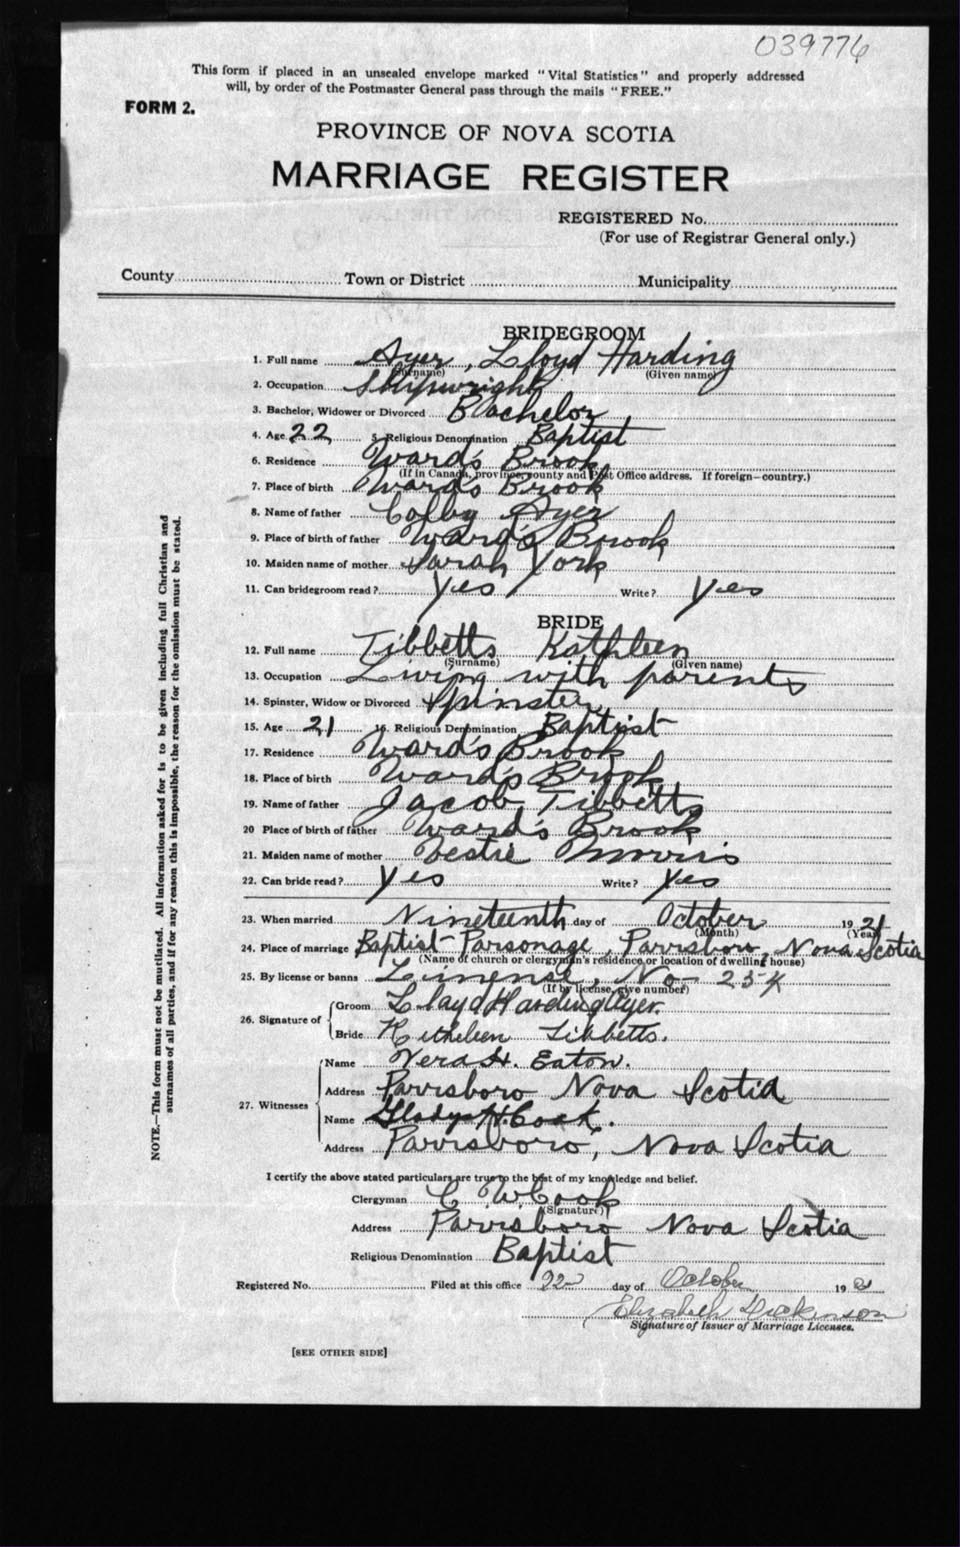 039776
This form if placed in an unsealed envelope marked "Vital Statistics" and properly addressed
will, by order of the Postmaster General pass through the mails "FREE."
FORM 2.
PROVINCE OF NOVA SCOTIA
MARRIAGE REGISTER
REGISTERED No.
(For use of Registrar General only.)
County Town or District Municipality
BRIDEGROOM
1. Full name Ayer, Lloyd Harding
(Surname) (Given name)
2. Occupation Shipwright
3. Bachelor, Widower or Divorced Bachelor
4. Age 22 5. Religious Denomination Baptist
6. Residence Ward's Brook
(If in Canada, province, county and Post Office address. If foreign—country.)
7. Place of birth Ward's Brook
8. Name of father Colby Ayer
9. Place of birth of father Ward's Brook
10. Maiden name of mother Sarah York
11. Can bridegroom read? Yes Write? Yes
BRIDE
12. Full name Tibbetts Kathleen
(Surname) (Given name)
13. Occupation Living with parents
14. Spinster, Widow or Divorced Spinster
15. Age 21 16. Religious Denomination Baptist
17. Residence Ward's Brook
18. Place of birth Ward's Brook
19. Name of father Jacob Tibbetts
20 Place of birth of father Ward's Brook
21. Maiden name of mother Morris
22. Can bride read? Yes Write? Yes
23. When married Nineteenth day of October 1921
(Month) (Year)
24. Place of marriage Baptist Parsonage, Parrsboro, Nova Scotia
(Name of church or clergyman's residence or location of dwelling house)
25. By license or banns No 254
(If by license, give number)
26. Signature of Groom Lloyd Harding Ayer.
Bride Kathleen Tibbetts.
27. Witnesses Name Vera H. Eaton.
Address Parrsboro Nova Scotia
Name Gladys H. Cook.
Address Parrsboro, Nova Scotia
I certify the above stated particulars are true to the best of my knowledge and belief.
Clergyman C W Cook
(Signature)
Address Parrsboro Nova Scotia
Religious Denomination Baptist
Registered No. Filed at this office 22 day of October 192
Elizabeth Dickinson
Signature of Issuer of Marriage Licenses.
[SEE OTHER SIDE]
NOTE.—This form must not be mutilated. All information asked for is to be given including full Christian and
surnames of all parties, and if for any reason this is impossible, the reason for the omission must be stated.